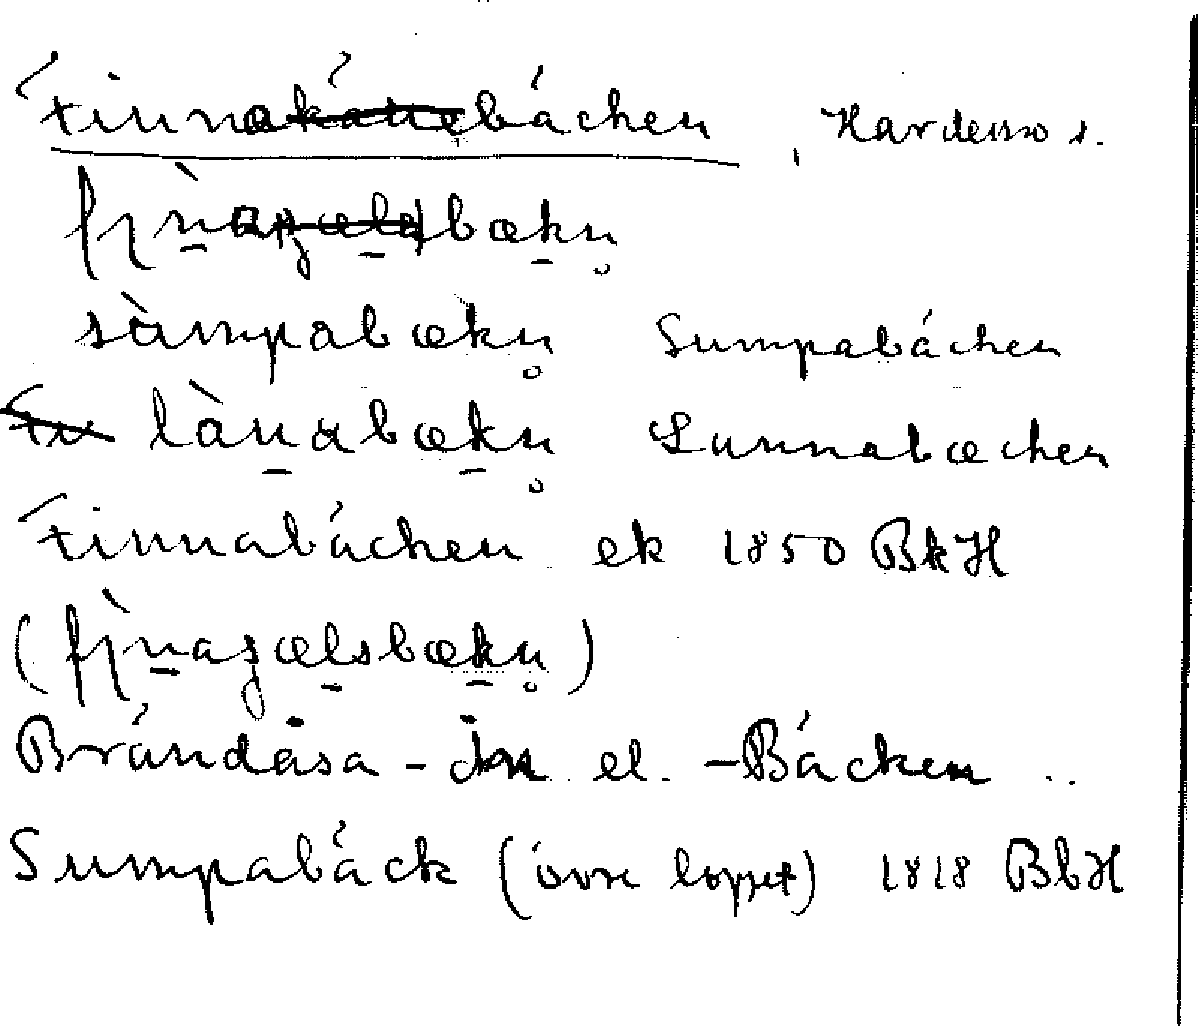 Finnabäcken, Hardemo s.
sùmpabækn̥ Sumpabäcken
lùnabækn̥ Lunnabäcken
Finnabäcken ek 1850 BkH
(fìnagælsbækn̥)
Brändåsa-ån el. -Bäcken
Sumpabäck (övre loppet) 1818 BbH